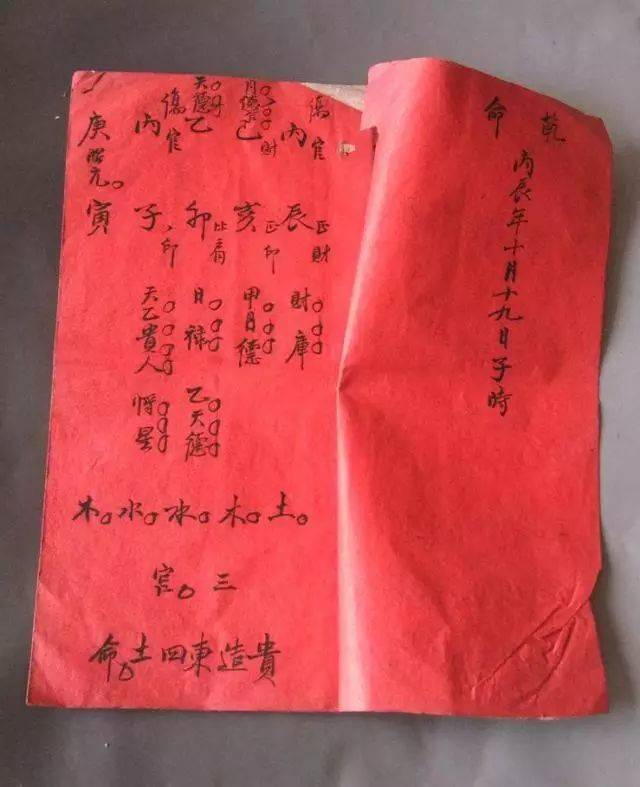 乾命
丙辰年十月十九日子時
傷官
丙
辰
正財
財庫
月德合
財
己
亥
正印
甲月德
天德
乙
卯
比肩
日祿
乙天德
傷官
丙
子
印
天乙貴人
將星
庚
寅
土木水水木
三官
貴造東四土命